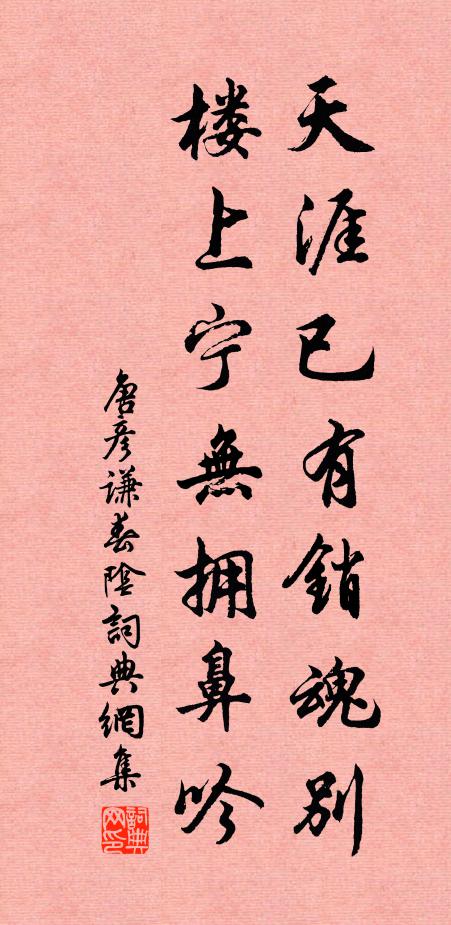 天涯已有銷魂别
楼上宁無拥鼻吟
唐彦谦春陰詞典網集
詞典网印